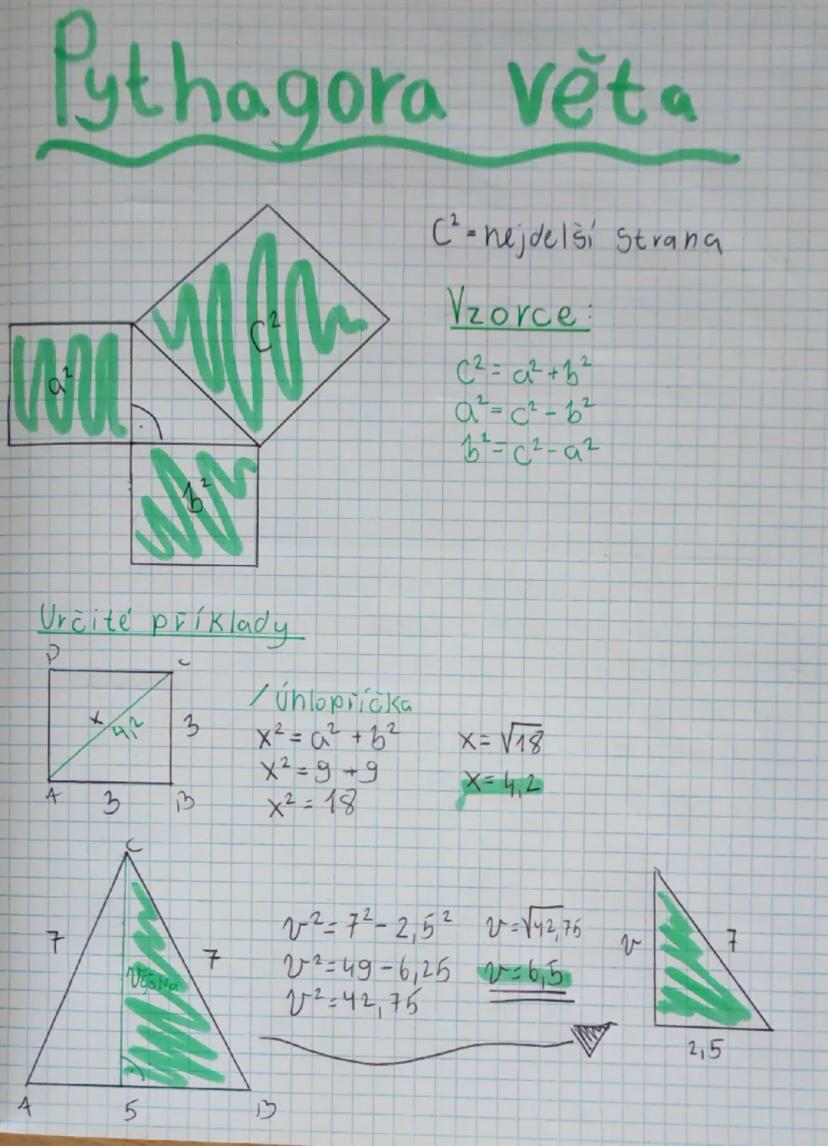 Pythagora věta
c² = nejdelší strana
Vzorce:
c² = a² + b²
a² = c² - b²
b² = c² - a²
c²
a²
b²
Určité příklady
D C
x 4,2
3
A 3 B
/Úhlopříčka
x² = a² + b²
x² = 9 + 9
x² = 18
x = √18
x = 4,2
C
7 7
Výška
A 5 B
v² = 7² - 2,5²
v² = 49 - 6,25
v² = 42,75
v = √42,75
v = 6,5
v 7
2,5